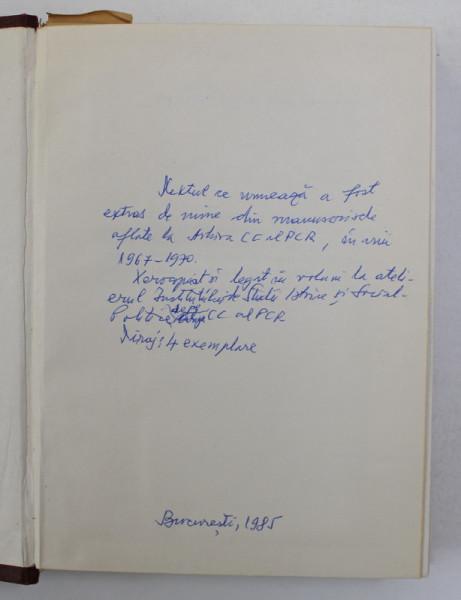 Textul ce urmează a fost
extras de mine din manuscrisele
aflate la Arhiva CC al PCR, în anii
1967-1970.
Xerocopiat și legat în volum la ateli-
erul Institutului de Studii Istorice și Social-
Politice de pe lângă CC al PCR
Tiraj: 4 exemplare
București, 1985